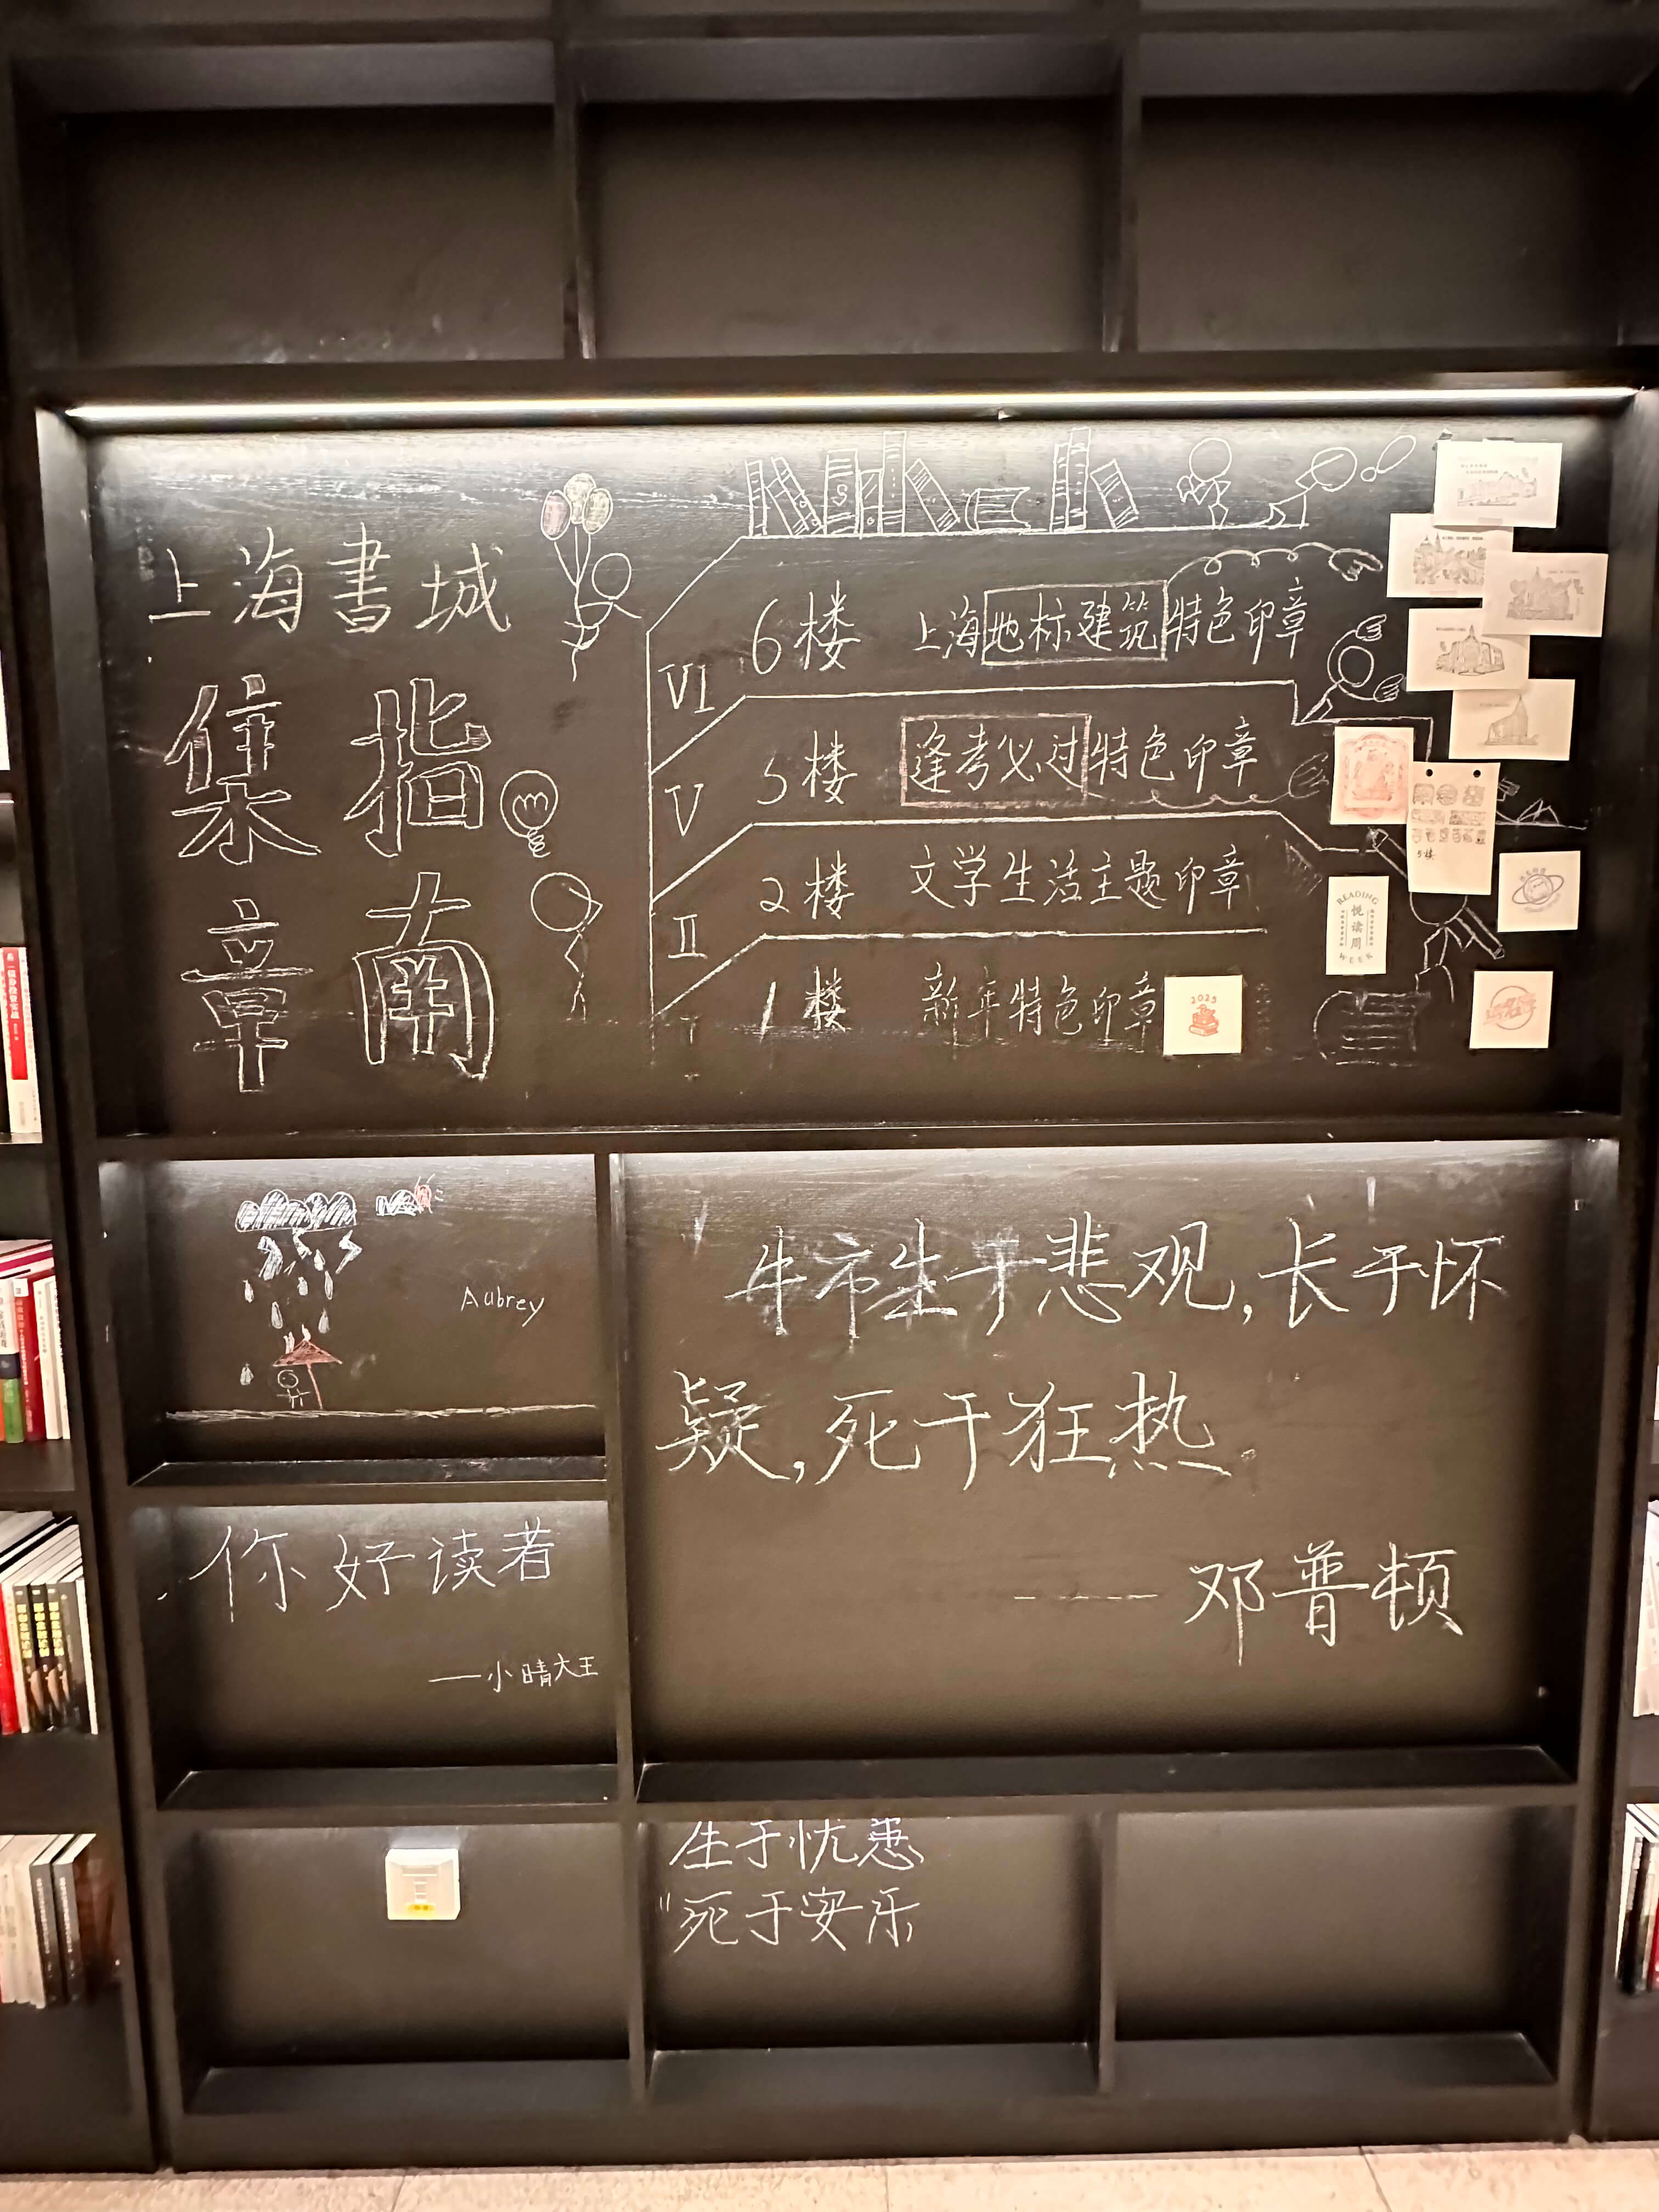 上海書城
集指
章南
VI 6楼 上海地标建筑特色印章
V 5楼 逢考必过特色印章
II 2楼 文学生活主题印章
I 1楼 新年特色印章
2025
5楼
READING
悦读周
WEEK
Aubrey
牛市生于悲观,长于怀
疑,死于狂热。
---- 邓普顿
你好读者
——小晴大王
生于忧患
"死于安乐